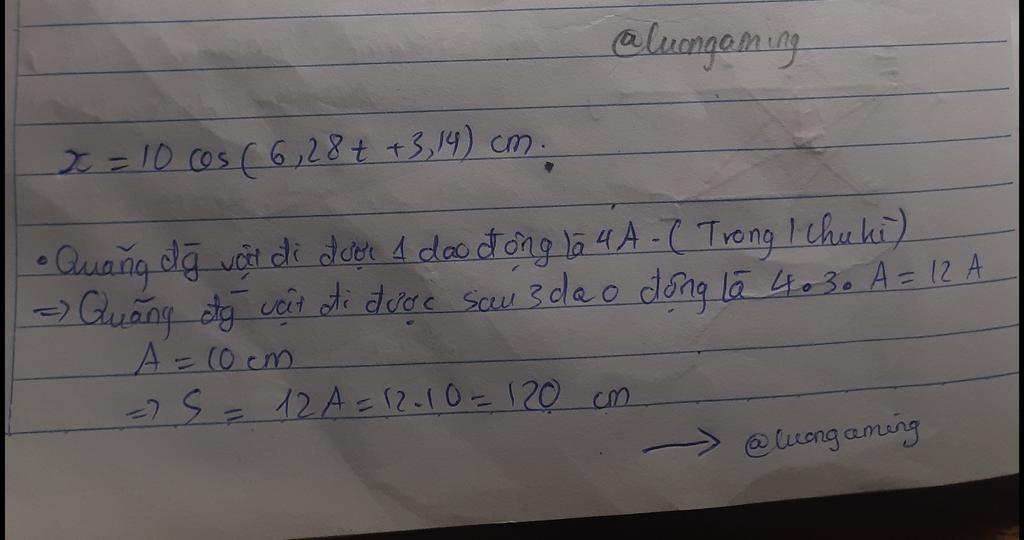 @luongaming
x = 10 cos( 6,28t + 3,14) cm.
• Quãng đg vật đi được 1 dao động là 4A - ( Trong 1 chu kì )
=> Quãng đg vật đi được sau 3 dao động là 4.3. A = 12 A
A = 10 cm
=> S = 12 A = 12.10 = 120 cm
→ @luongaming